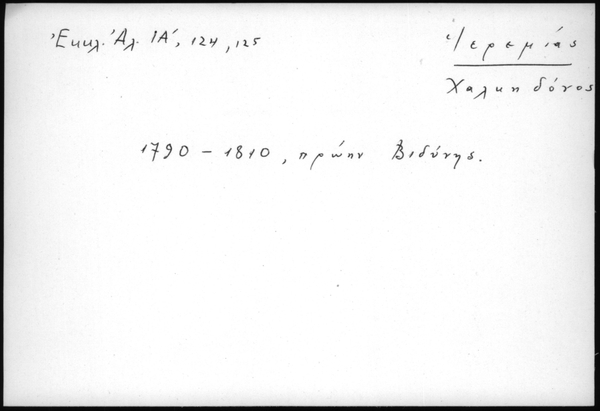 Ἐκκλ. Ἀλ. ΙΑ´, 124, 125
Ἱερεμίας
Χαλκηδόνος
1790 – 1810, πρώην Βιδύνης.